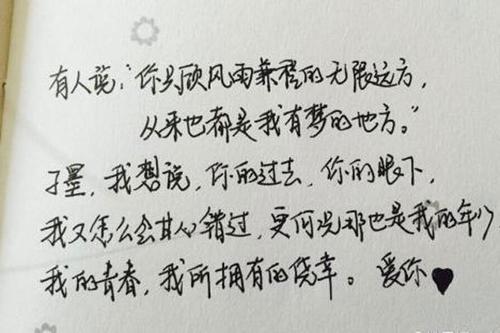 有人说："你只顾风雨兼程的无限远方，
从来也都是我有梦的地方。"
子墨，我想说，你的过去，你的眼下，
我又怎么会甘心错过，更何况那也是我的年少
我的青春，我所拥有的侥幸。爱你♥